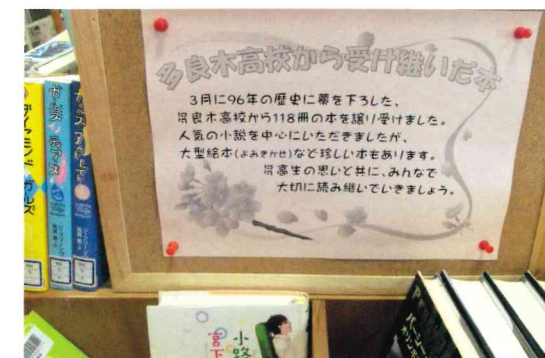 多良木高校から受け継いだ本
3月に96年の歴史に幕を下ろした、
多良木高校から118冊の本を譲り受けました。
人気の小説を中心にいただきましたが、
大型絵本(よみきかせ)など珍しい本もあります。
多高生の思いと共に、みんなで
大切に読み継いでいきましょう。
ガールズ
ガールズ
小路
宮下
パーシー
オリンポス